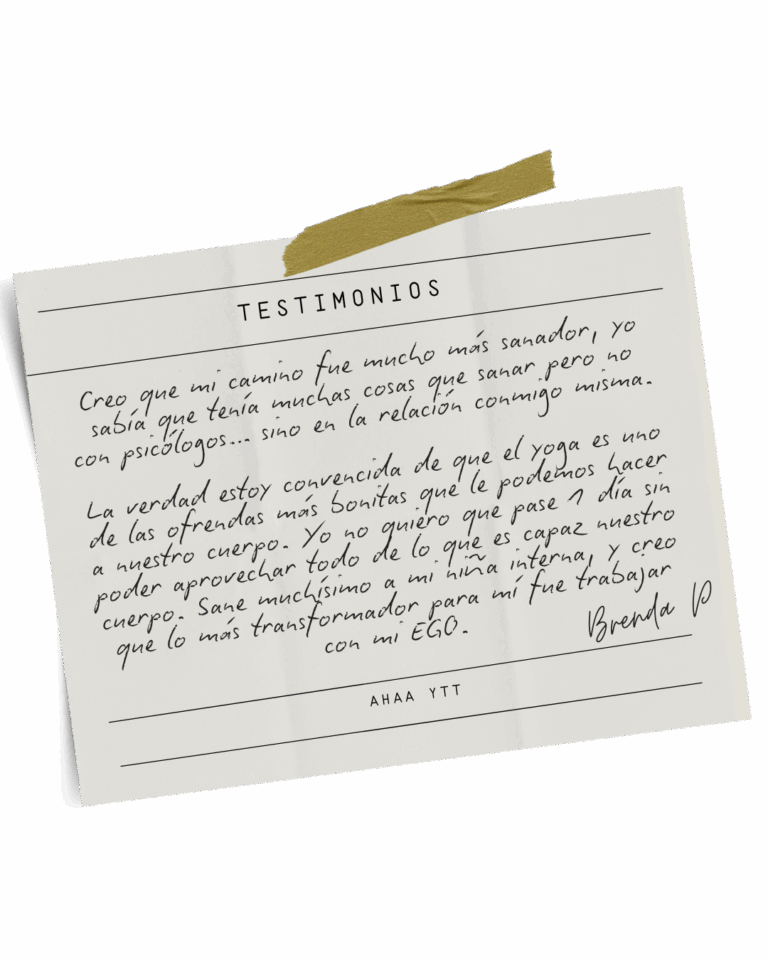 TESTIMONIOS
Creo que mi camino fue mucho más sanador, yo
sabía que tenía muchas cosas que sanar pero no
con psicólogos... sino en la relación conmigo misma.
La verdad estoy convencida de que el yoga es uno
de las ofrendas más bonitas que le podemos hacer
a nuestro cuerpo. Yo no quiero que pase 1 día sin
poder aprovechar todo de lo que es capaz nuestro
cuerpo. Sane muchísimo a mi niña interna, y creo
que lo más transformador para mí fue trabajar
con mi EGO.
Brenda P
AHAA YTT